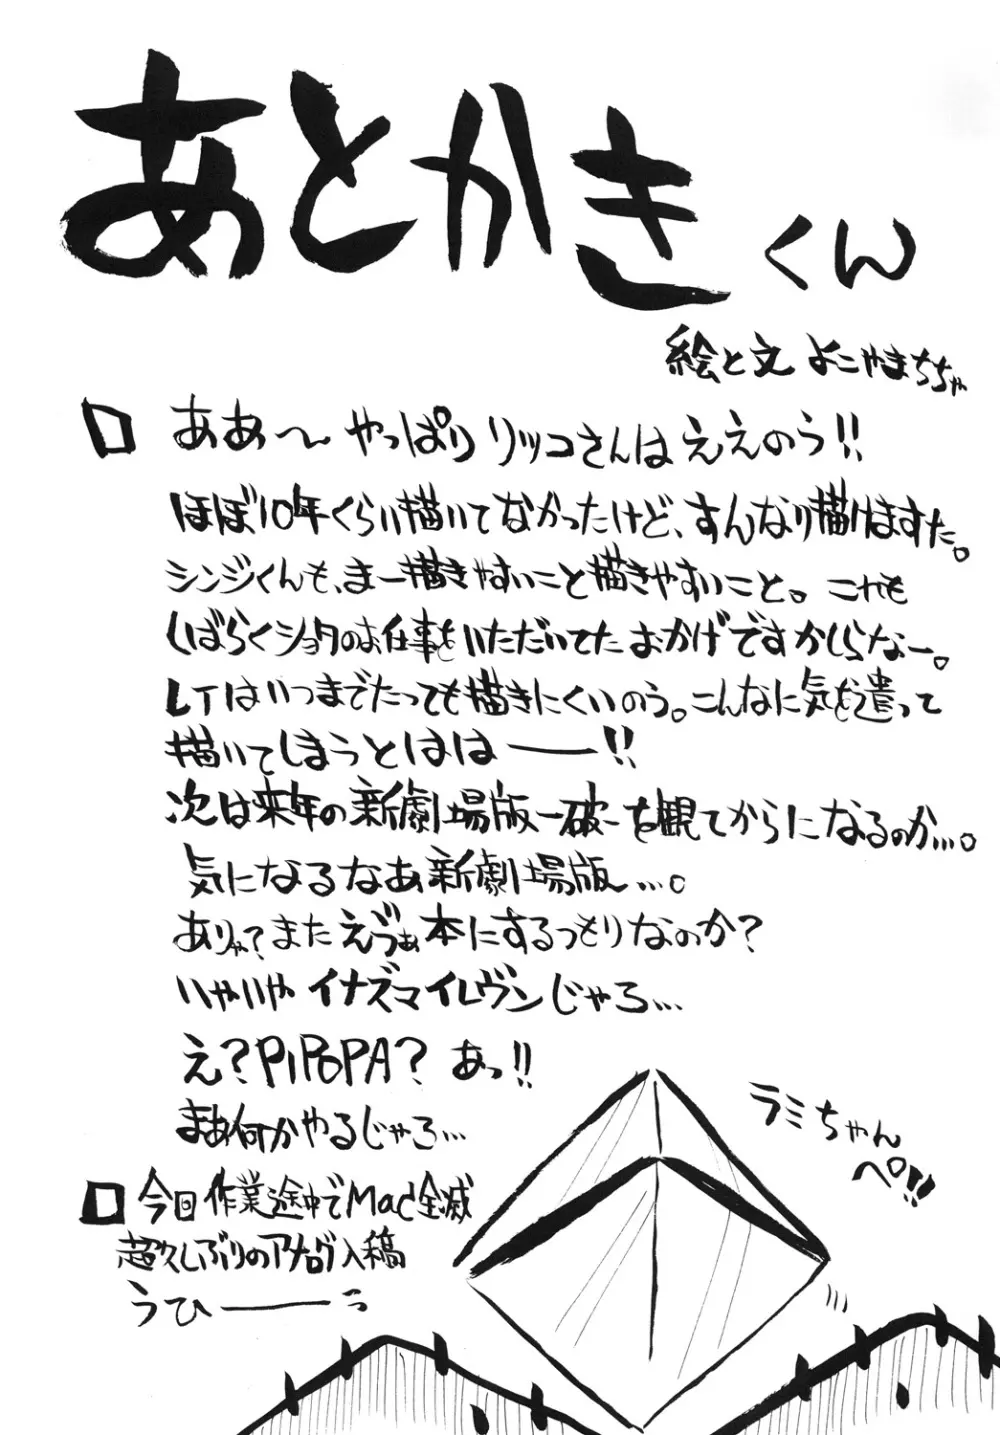 あとかきくん
絵と文 よこやまちちゃ
□ ああ～やっぱりリッコさんはええのう!!
ほぼ10年くらい描いてなかったけど、すんなり描けますた。
シンジくんも、まー描きやすいこと描きやすいこと。これも
しばらくショタのお仕事をいただいてたおかげですかしらなー。
レイはいつまでたっても描きにくいのう。こんなに気を遣って
描いてしまうとはは――!!
次は来年の新劇場版-破-を観てからになるのか…。
気になるなあ新劇場版…。
ありゃ?またえづぁ本にするつもりなのか?
いやいやイナズマイレヴンじゃろ…
え?PiPoPA?あっ!!
まあ何かやるじゃろ…
□ 今回作業途中でMac全滅
超久しぶりのアナログ入稿
うひ――っ
ラミちゃん
ペ!!